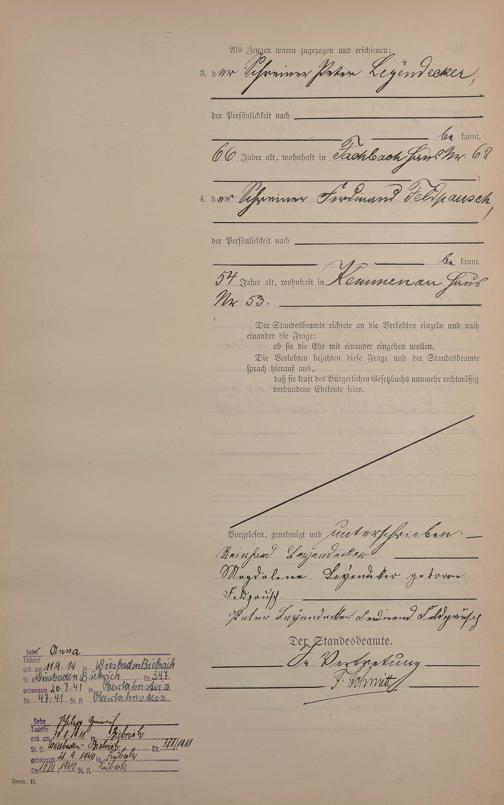 Als Zeugen waren zugezogen und erschienen:
3. der Schreiner Peter Leyendecker,
der Persönlichkeit nach
be kannt,
66 Jahre alt, wohnhaft in Fachbach Haus Nr. 68
;
4. der Schreiner Ferdinand Feldpausch,
der Persönlichkeit nach
be kannt,
54 Jahre alt, wohnhaft in Kemmenau Haus
Nr 53.
Der Standesbeamte richtete an die Verlobten einzeln und nach
einander die Frage:
ob sie die Ehe mit einander eingehen wollen.
Die Verlobten bejahten diese Frage und der Standesbeamte
sprach hierauf aus,
daß sie kraft des Bürgerlichen Gesetzbuchs nunmehr rechtmäßig
verbundene Eheleute seien.
Vorgelesen, genehmigt und unterschrieben.
Reinhard Leyendecker
Magdalena Leyendecker geborene
Feldpausch
Peter Leyendecker Ferdinand Feldpausch
Der Standesbeamte.
In Vertretung
F. Schmitt
Sohn Anna
Tochter
geb. am 11.9.14 in Wiesbaden Biebrich
St. A. Wiesbaden Biebrich Nr. 347
geheiratet 26.7.41 in Oberlahnstein
Nr. 47/41 St. A. Oberlahnstein
Sohn Philipp
Tochter
geb. am in Biebrich
St. A. Wiesbaden-Biebrich Nr.
1940
Nr. St. A.
Form. B.